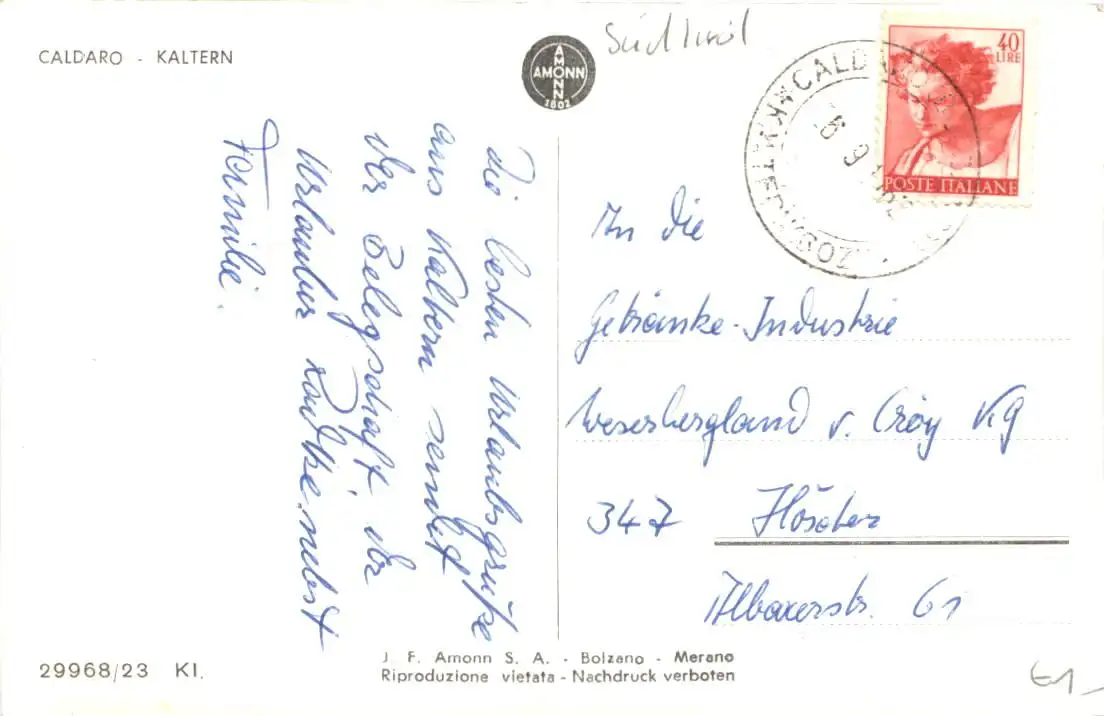 CALDARO - KALTERN
AMONN
AMONN
1802
Südtirol
40
LIRE
POSTE ITALIANE
Die besten Urlaubsgrüße
aus Kaltern sendet
der Belegschaft, der
Urlauber Radtke nebst
Familie.
An die
Getränke-Industrie
Weserbergland v. Croy KG
347 Höxter
Albaxerstr. 61
29968/23 Kl.
J. F. Amonn S. A. - Bolzano - Merano
Riproduzione vietata - Nachdruck verboten
€1,-